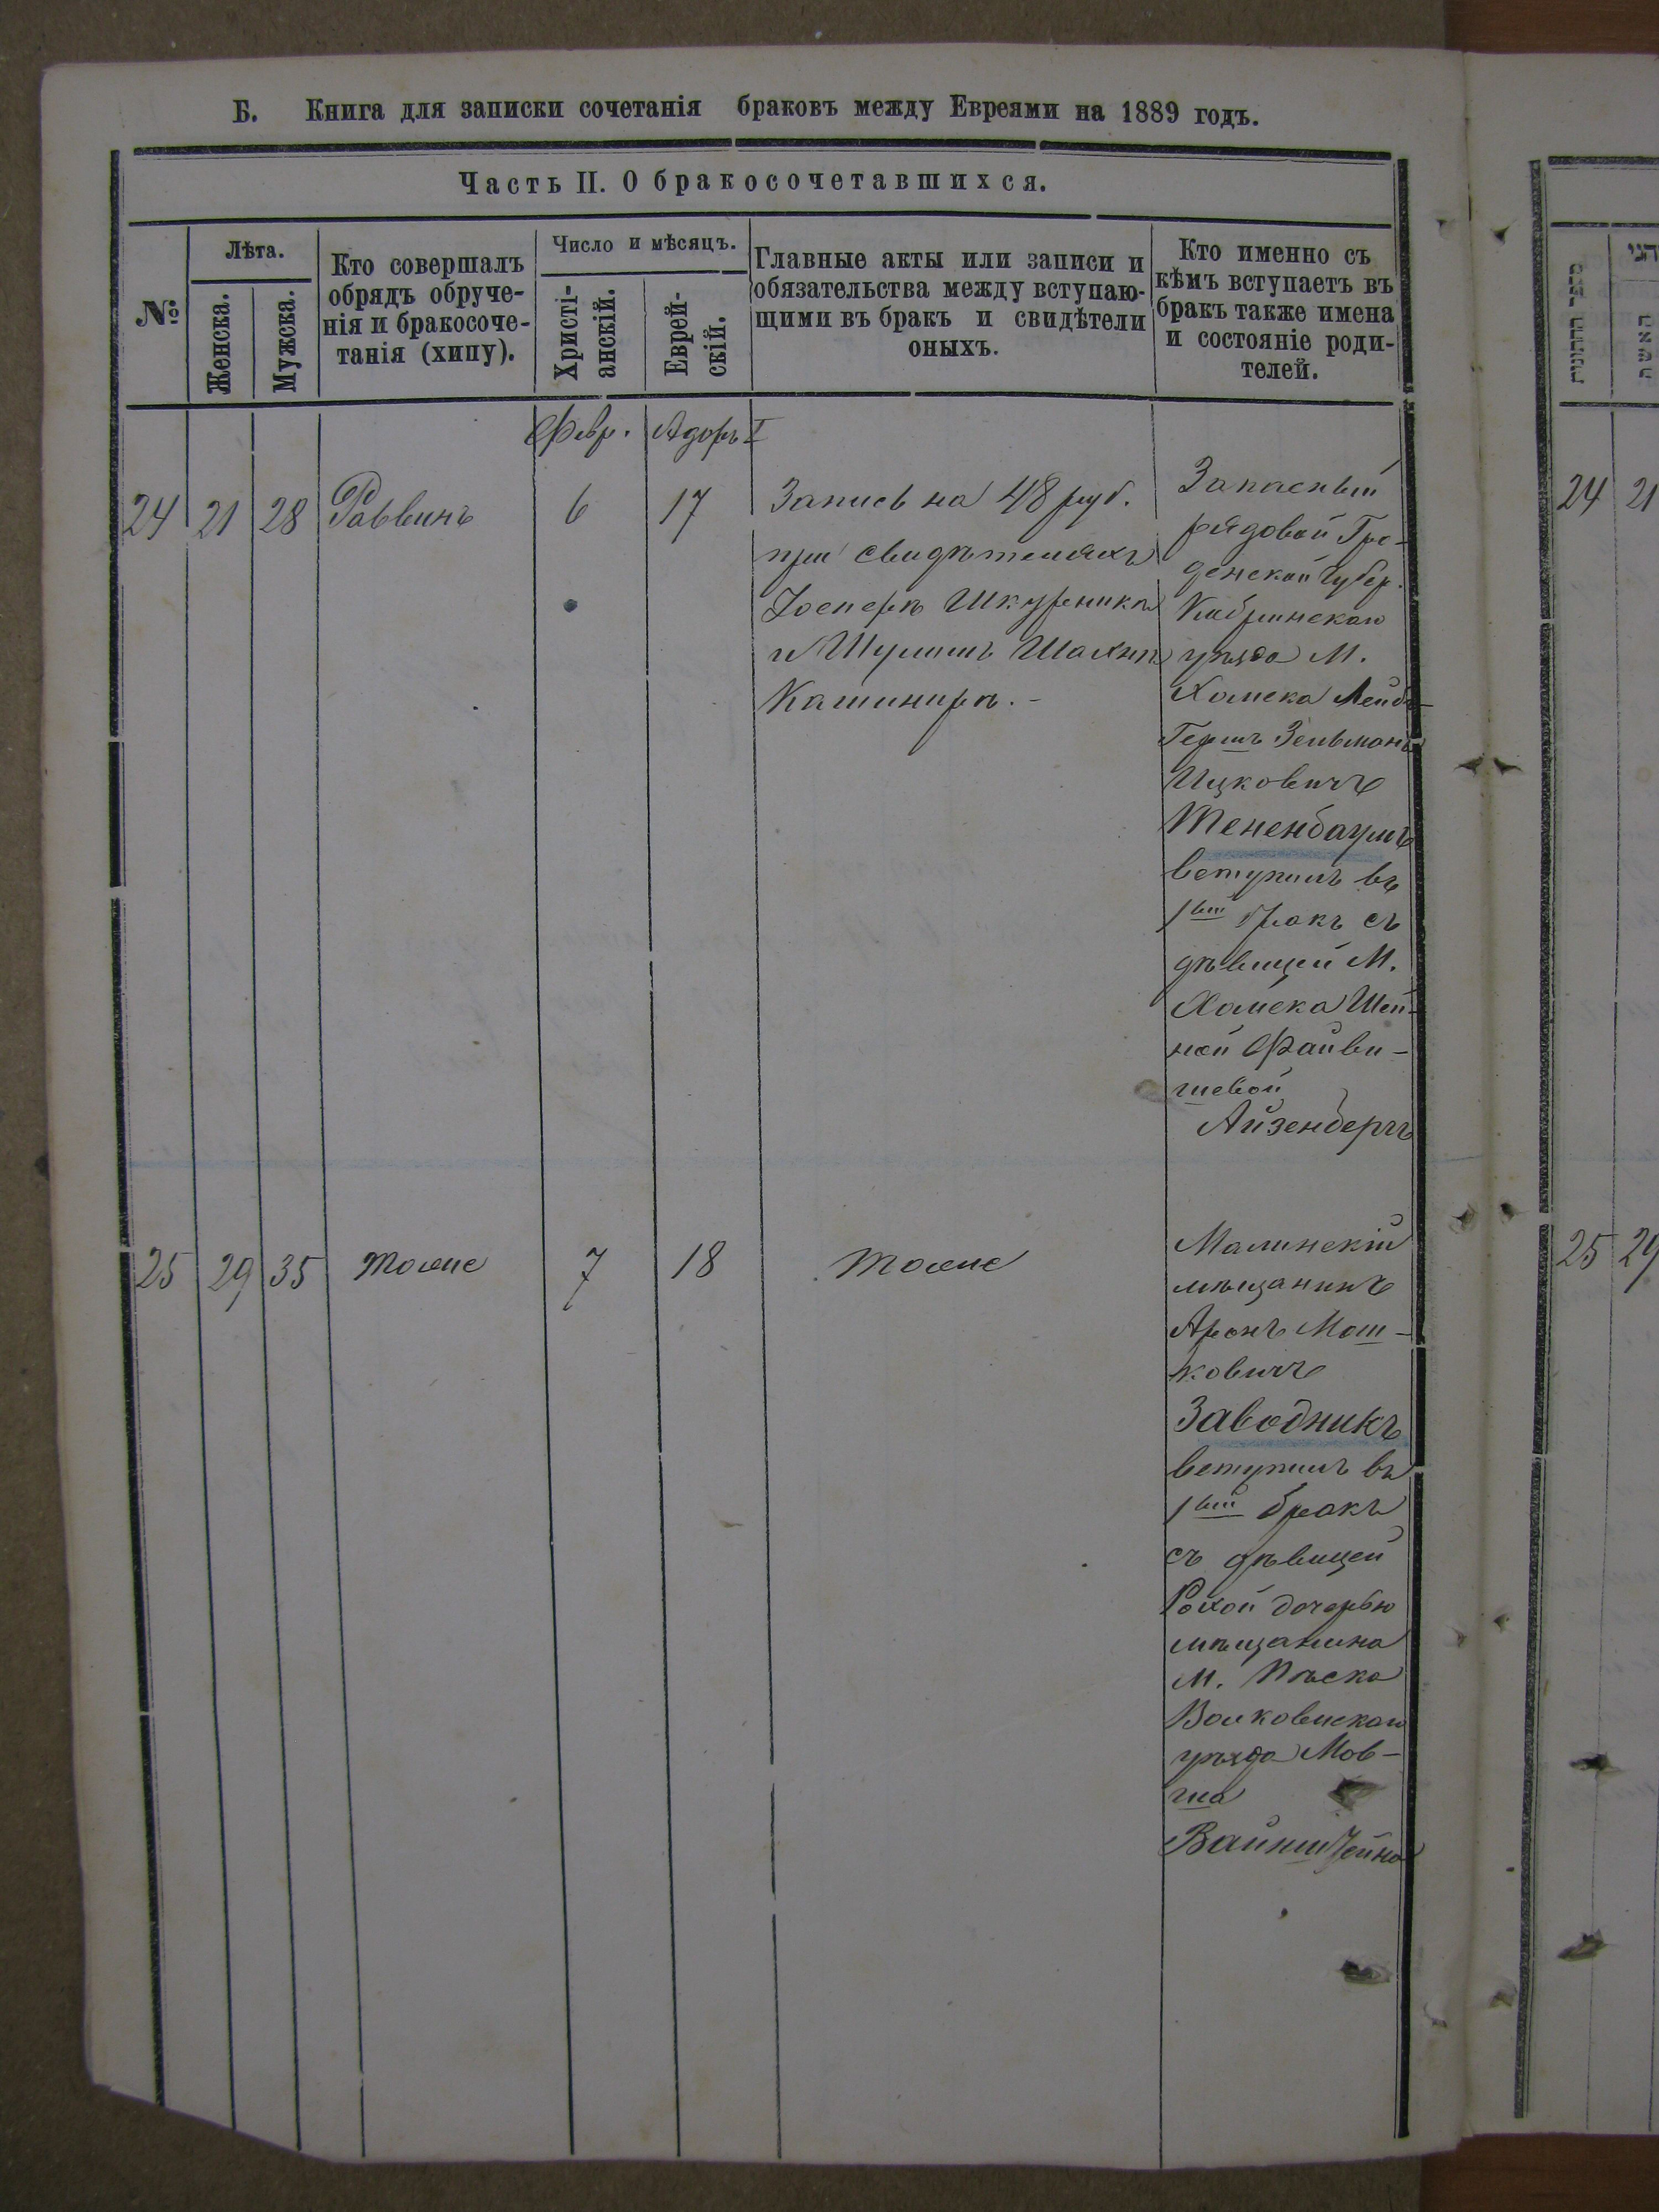 Б. Книга для записки сочетанія браковъ между Евреями на 1889 годъ.
Часть II. О бракосочетавшихся.
№
Лѣта.
Женска.
Мужска.
Кто совершалъ
обрядъ обруче-
нія и бракосоче-
танія (хипу).
Число и мѣсяцъ.
Христі-
анскій.
Еврей-
скій.
Главные акты или записи и
обязательства между вступаю-
щими въ бракъ и свидѣтели
оныхъ.
Кто именно съ
кѣмъ вступаетъ въ
бракъ также имена
и состояніе роди-
телей.
Февр. Адоръ I
24 21 28 Раввинъ 6 17
Запись на 48 руб.
при свидѣтеляхъ
Іосперѣ Шкурникѣ
и Шулимъ Шахнѣ
Кашинирѣ.-
Запасный
рядовой Гро-
денской Губер.
Кобринскаго
уѣзда М.
Хомска Лейбъ-
Гершъ Зельманъ
Ицковичъ
Тененбаумъ
вступилъ въ
1вый бракъ съ
дѣвицей М.
Хомска Шей-
ной Файви-
шевой
Айзенбергъ
25 29 35 тоже 7 18 тоже
мѣщанинъ
Аронъ Мош-
ковичъ
Заводникъ
вступилъ въ
1вый бракъ
съ дѣвицей
Рохой дочерью
мѣщанина
М. Пѣска
Волковискаго
уѣзда Мов-
ша
24 21
25 29
ספר החתונות
האשה